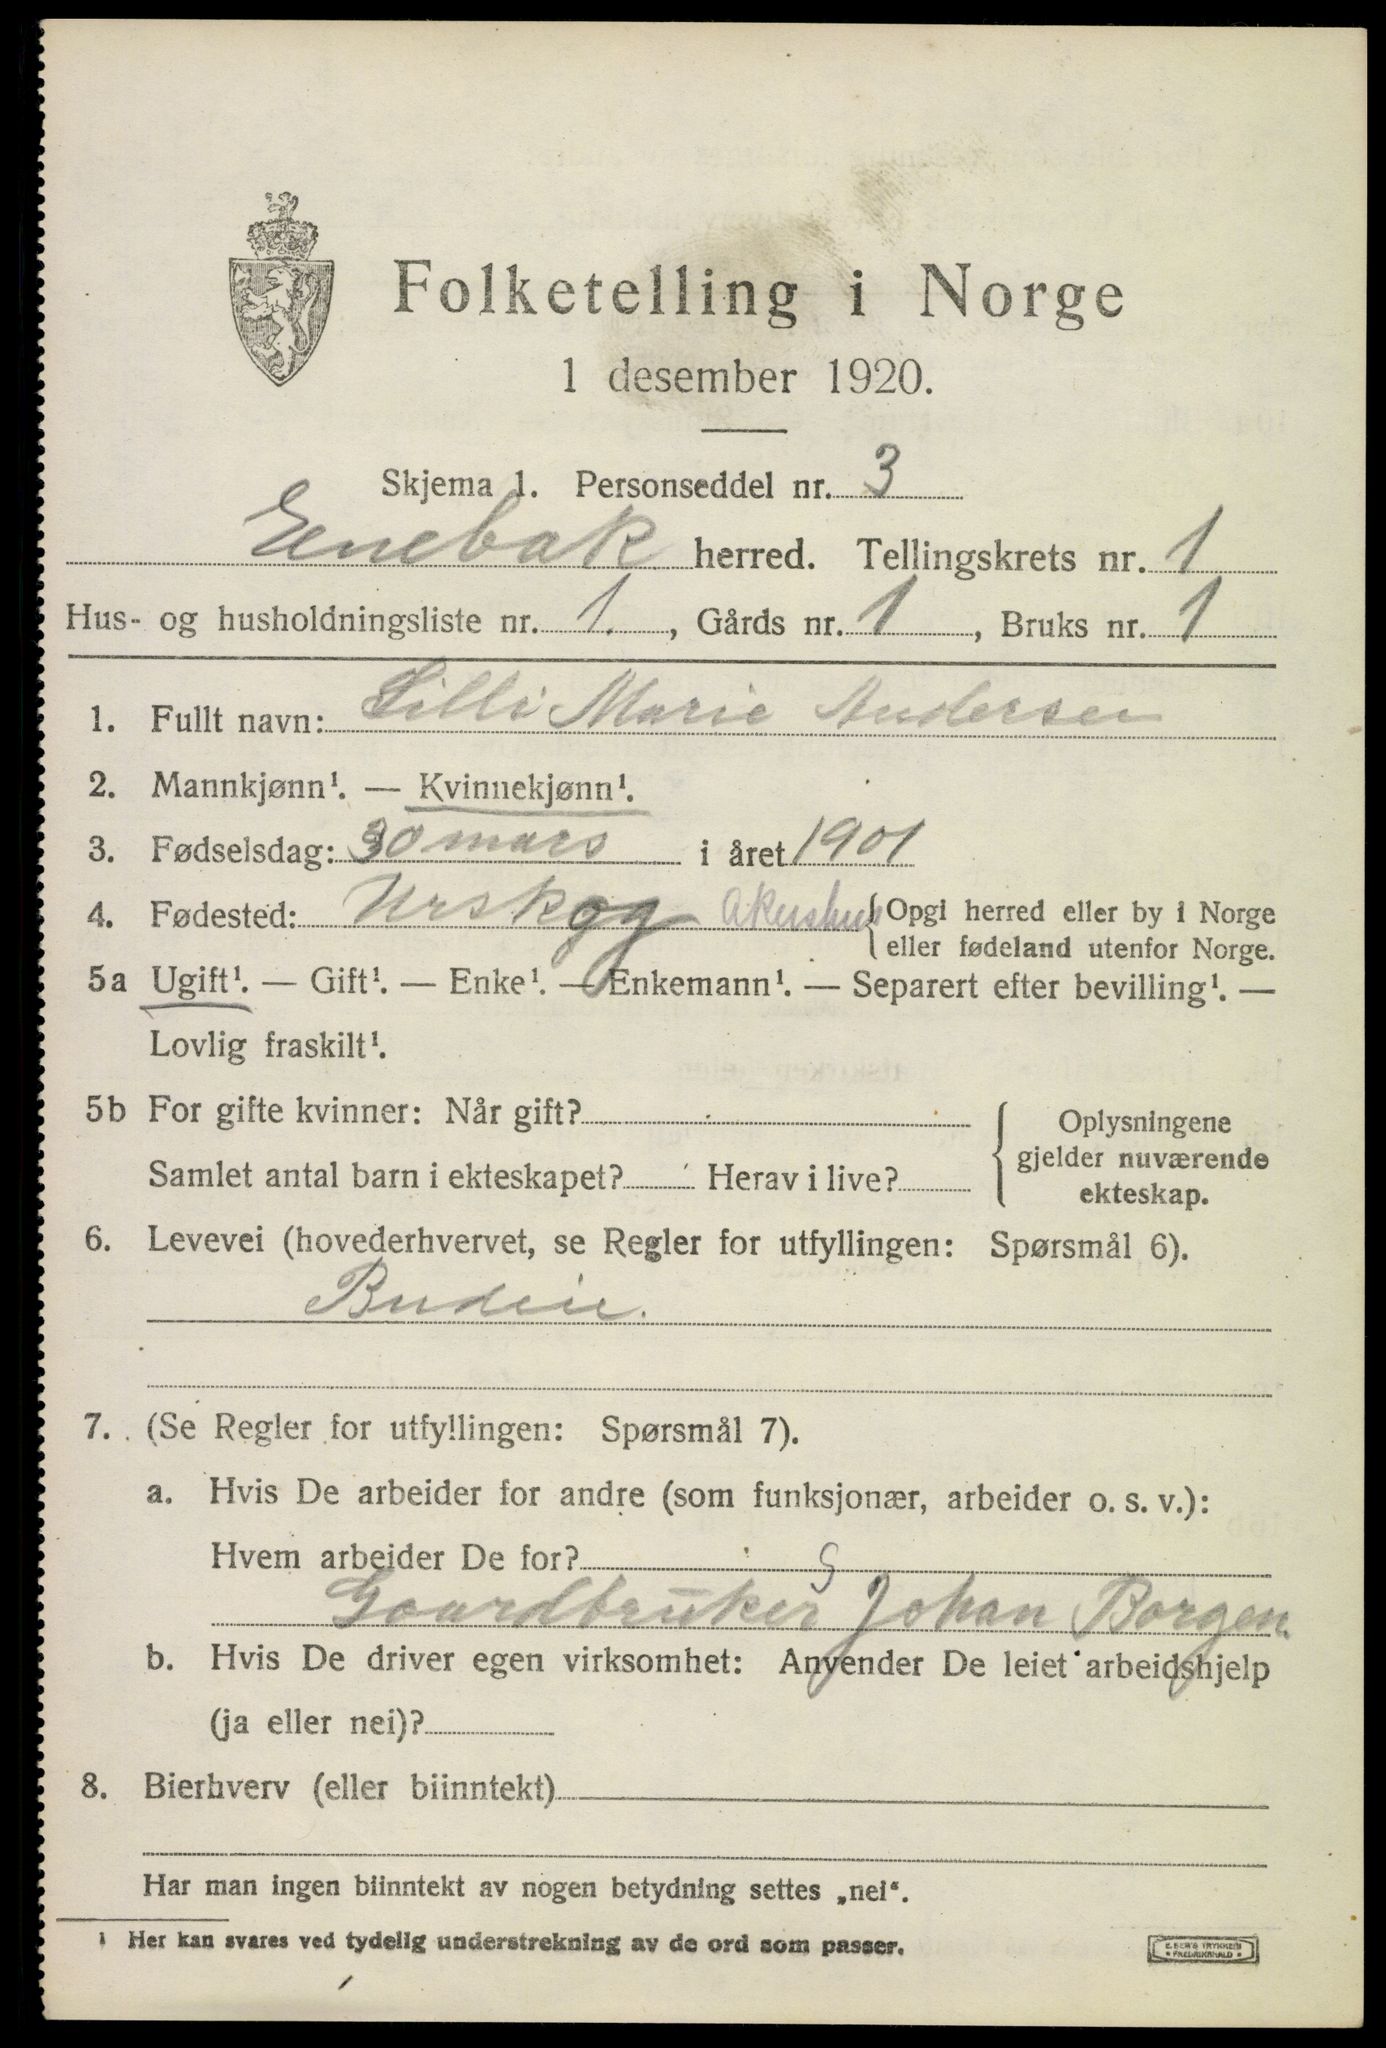 Folketelling i Norge
1 desember 1920.
Skjema 1. Personseddel nr. 3
Enebak herred. Tellingskrets nr. 1
Hus- og husholdningsliste nr. 1., Gårds nr. 1, Bruks nr. 1
1. Fullt navn: Lilli Marie Andersen
2. Mannkjønn¹. — Kvinnekjønn¹.
3. Fødselsdag: 30 mars i året 1901
4. Fødested: Urskog Akershus { Opgi herred eller by i Norge
eller fødeland utenfor Norge.
5a Ugift¹. — Gift¹. — Enke¹. — Enkemann¹. — Separert efter bevilling¹. —
Lovlig fraskilt¹.
5b For gifte kvinner: Når gift?
Samlet antal barn i ekteskapet? Herav i live?
{ Oplysningene
gjelder nuværende
ekteskap.
6. Levevei (hovederhvervet, se Regler for utfyllingen: Spørsmål 6).
Budeie.
7. (Se Regler for utfyllingen: Spørsmål 7).
a. Hvis De arbeider for andre (som funksjonær, arbeider o. s. v.):
Hvem arbeider De for?
Gaardbruker Johan Borgen.
b. Hvis De driver egen virksomhet: Anvender De leiet arbeidshjelp
(ja eller nei)?
8. Bierhverv (eller biinntekt)
Har man ingen biinntekt av nogen betydning settes „nei“.
¹ Her kan svares ved tydelig understrekning av de ord som passer.
E. SEM'S TRYKKERI
• FREDRIKSHALD •